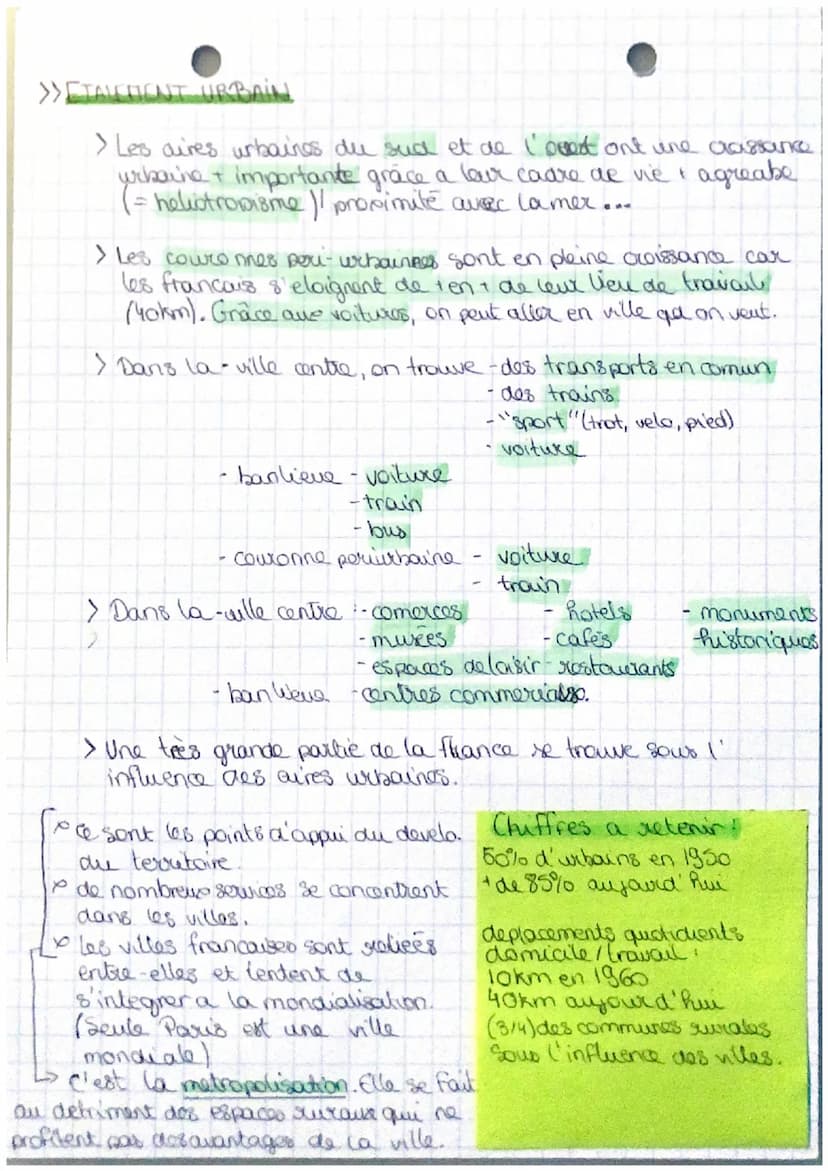 >> ETALEMENT URBAIN
> Les aires urbaines du sud et de l'ouest ont une croissance
urbaine + importante grâce a leur cadre de vie + agreabe
(= heliotropisme)/ proximité avec la mer ...
> Les couronnes peri-urbaines sont en pleine croissance car
les francais s'eloignent de + en + de leur lieu de travail
(40km). Grâce aux voitures, on peut aller en ville qd on veut.
> Dans la - ville centre, on trouve - des transports en comun
- des trains
- "sport" (trot, velo, pied)
- voiture
- banlieue - voiture
- train
- bus
- couronne periurbaine - voiture
- train
> Dans la - ville centre : - comerces - hotels - monuments
- musées - cafés historiques
- espaces de loisir - restaurants
- banlieue - centres commerciaux.
> Une très grande partie de la france se trouve sous l'
influence des aires urbaines.
ce sont les points d'appui du develo.
du territoire.
de nombreux services se concentrent
dans les villes.
les villes francaises sont reliées
entre-elles et tendent de
s'integrer a la mondialisation.
(Seule Paris est une ville
mondiale)
↳ C'est la metropolisation. Elle se fait
au detriment des espaces ruraux qui ne
profitent pas des avantages de la ville.
Chiffres a retenir !
50% d'urbains en 1950
+ de 85% aujourd'hui
deplacements quotidients
domicile / travail :
10km en 1960
40km aujourd'hui
(3/4) des communes rurales
sous l'influence des villes.